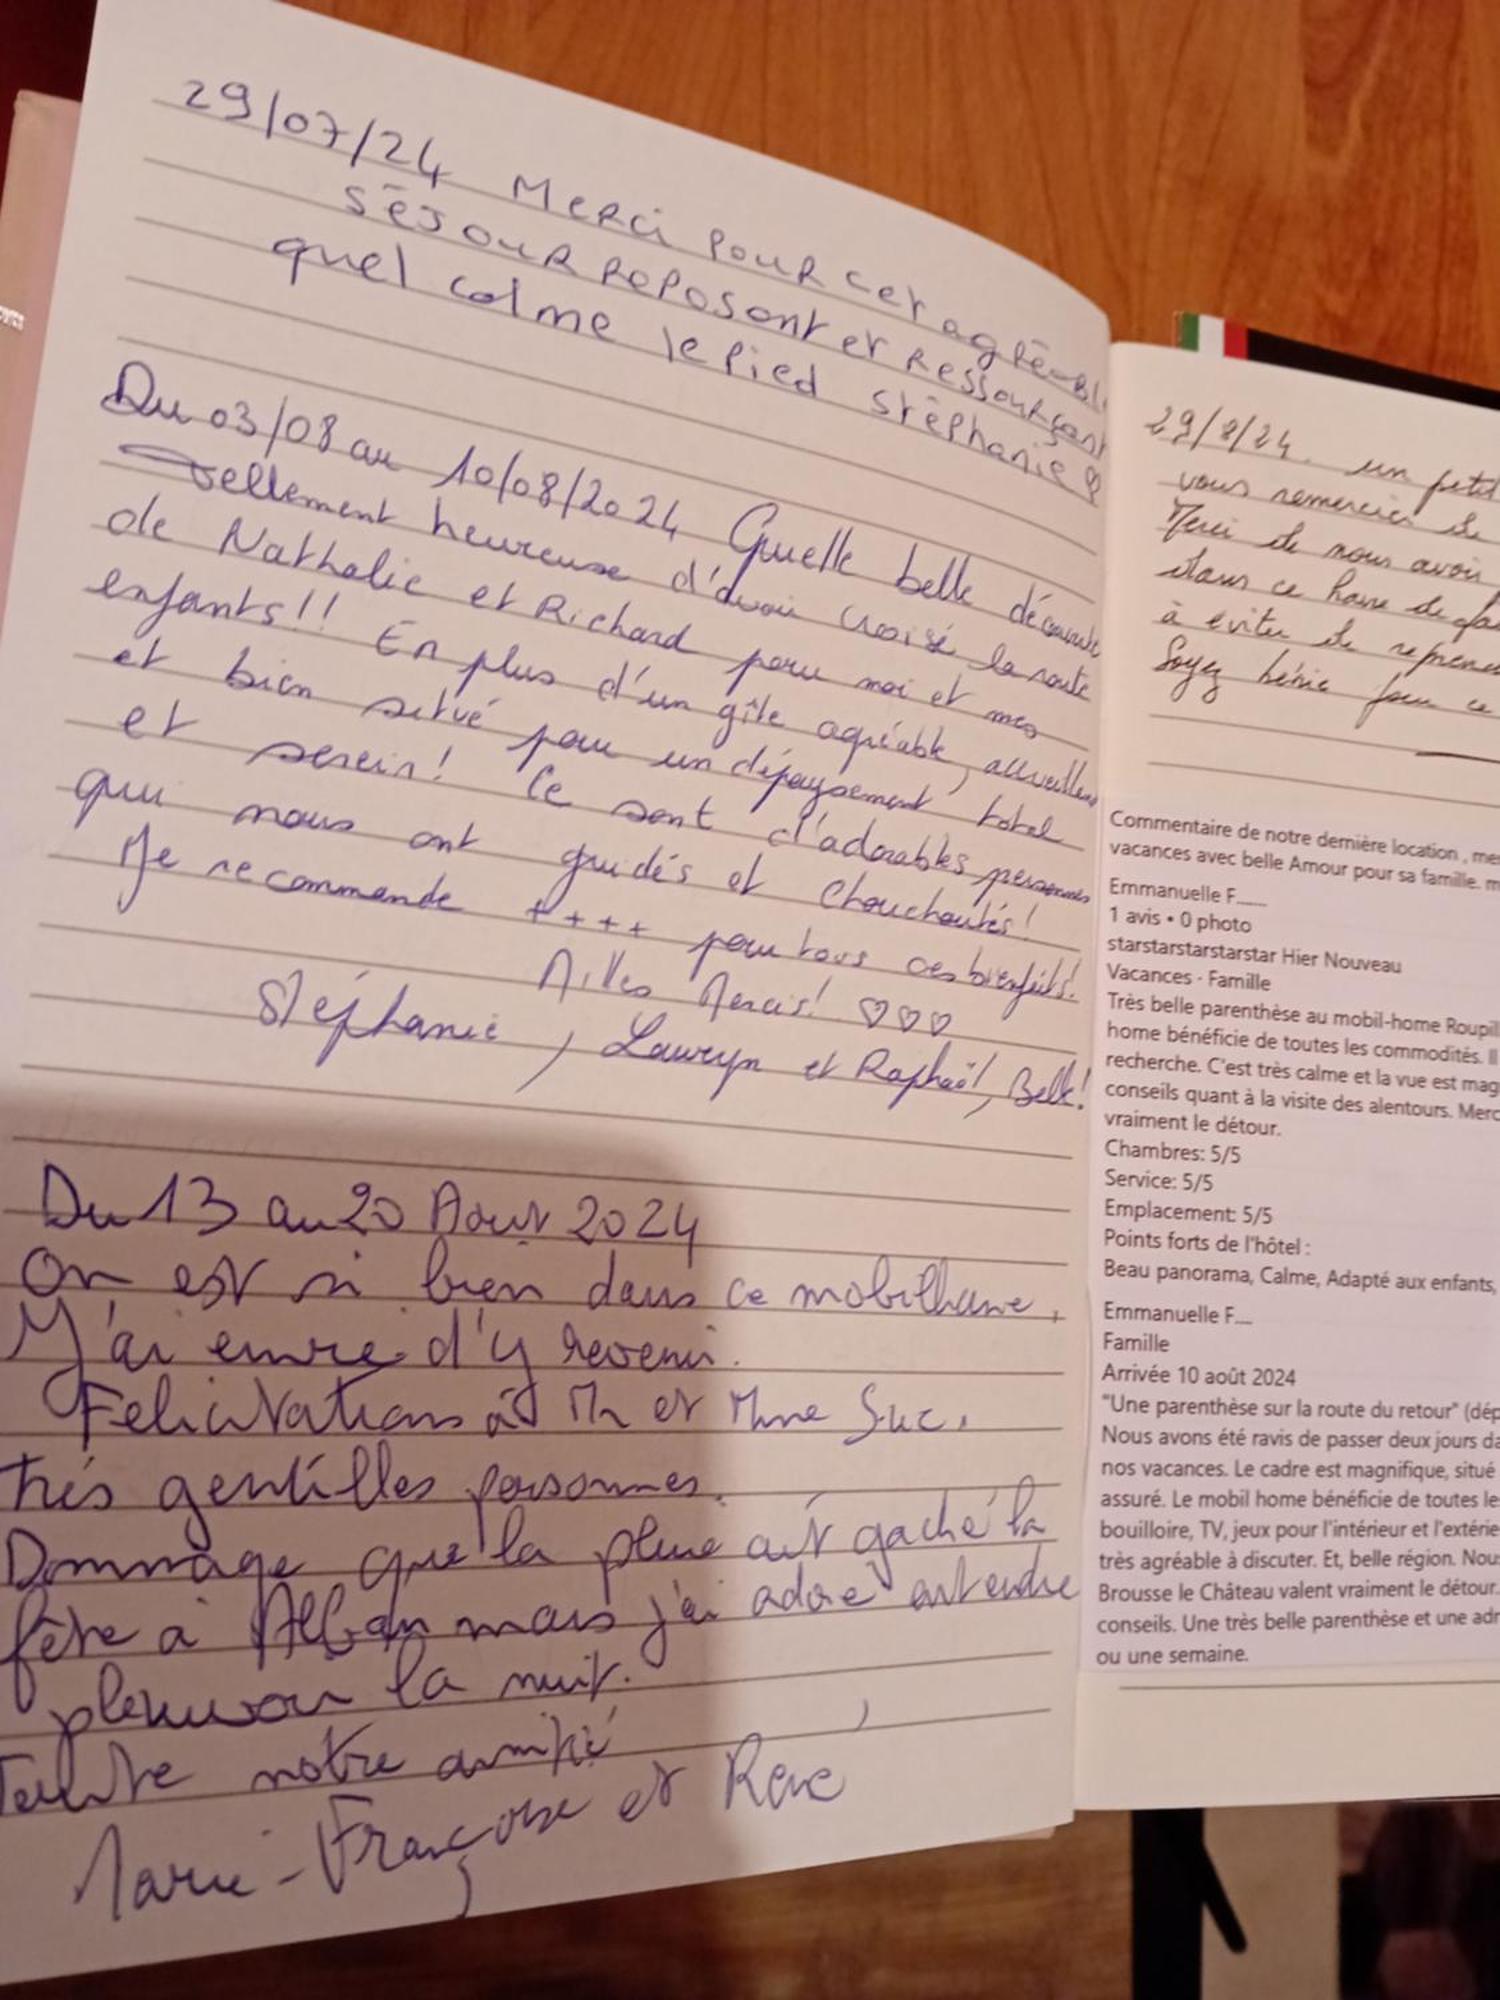 29/07/24 Merci pour cet agréable
séjour reposant et ressourçant
quel calme le pied Stéphanie
Du 03/08 au 10/08/2024 Quelle belle découverte
Tellement heureuse d'avoir croisé la route
de Nathalie et Richard pour moi et mes
enfants!! En plus d'un gîte agréable, accueillant
et bien situé pour un dépaysement total
et serein! Ce sont d'adorables personnes
qui nous ont guidés et chouchoutés!
Je recommande ++++ pour tous ces bienfaits!
Milles Mercis! ♡♡♡
Stéphanie, Lauryn et Raphaël, Belle!
Du 13 au 20 Aout 2024
On est si bien dans ce mobilhome,
J'ai envie d'y revenir.
Felicitations à Mr et Mme Suc,
très gentilles personnes.
Dommage que la pluie ait gaché la
fête à Alban mais j'ai adoré entendre
pleuvoir la nuit.
Toute notre amitié
Marie-Françoise et René
29/8/24. un petit
vous remercier de
Merci de nous avoir
dans ce havre de
à éviter de
Soyez bénie pour ce
Commentaire de notre dernière location , mes
vacances avec belle Amour pour sa famille. m
Emmanuelle F.......
1 avis • 0 photo
starstarstarstarstar Hier Nouveau
Vacances - Famille
Très belle parenthèse au mobil-home Roupil
home bénéficie de toutes les commodités. Il
recherche. C'est très calme et la vue est mag
conseils quant à la visite des alentours. Merc
vraiment le détour.
Chambres: 5/5
Service: 5/5
Emplacement: 5/5
Points forts de l'hôtel :
Beau panorama, Calme, Adapté aux enfants,
Emmanuelle F....
Famille
Arrivée 10 août 2024
"Une parenthèse sur la route du retour" (dép
Nous avons été ravis de passer deux jours da
nos vacances. Le cadre est magnifique, situé
assuré. Le mobil home bénéficie de toutes les
bouilloire, TV, jeux pour l'intérieur et l'extérie
très agréable à discuter. Et, belle région. Nous
Brousse le Château valent vraiment le détour.
conseils. Une très belle parenthèse et une adr
ou une semaine.